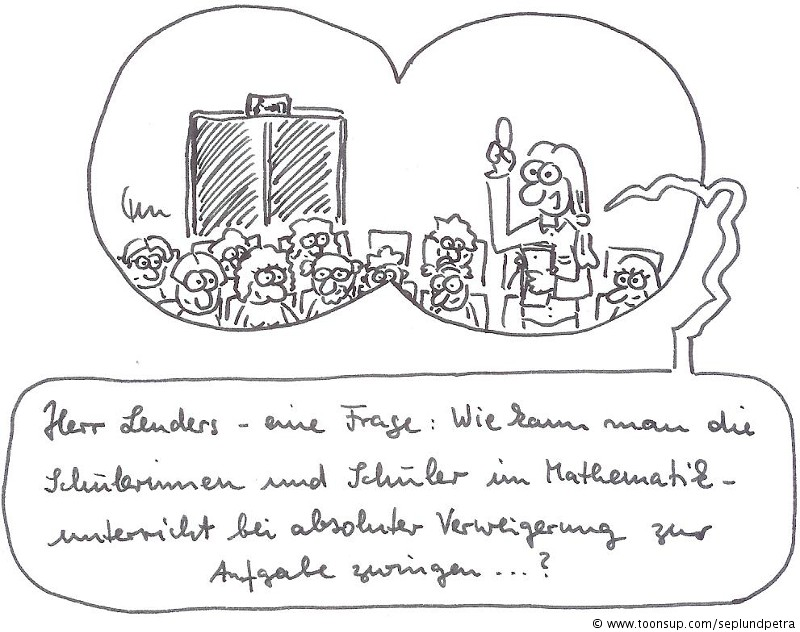 Herr Lenders - eine Frage: Wie kann man die
Schülerinnen und Schüler im Mathematik-
unterricht bei absoluter Verweigerung zur
Aufgabe zwingen...?
© www.toonsup.com/seplundpetra